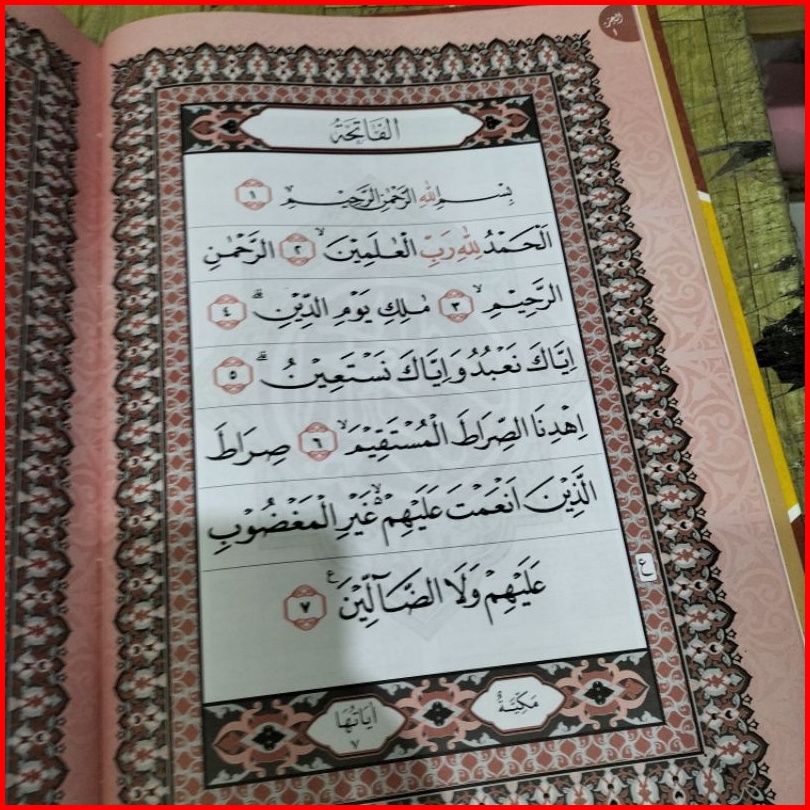 الجزء ١
الفَاتِحَةُ
بِسْمِ اللهِ الرَّحْمٰنِ الرَّحِيْمِ ۙ ١
اَلْحَمْدُ لِلّٰهِ رَبِّ الْعٰلَمِيْنَ ۙ ٢ الرَّحْمٰنِ
الرَّحِيْمِ ۙ ٣ مٰلِكِ يَوْمِ الدِّيْنِ ۗ ٤
اِيَّاكَ نَعْبُدُ وَاِيَّاكَ نَسْتَعِيْنُ ۗ ٥
اِهْدِنَا الصِّرَاطَ الْمُسْتَقِيْمَ ۙ ٦ صِرَاطَ
الَّذِيْنَ اَنْعَمْتَ عَلَيْهِمْ ۙ غَيْرِ الْمَغْضُوْبِ
عَلَيْهِمْ وَلَا الضَّاۤلِّيْنَ ࣖ ٧
ع
مَكِّيَّةٌ
اٰيَاتُهَا
٧